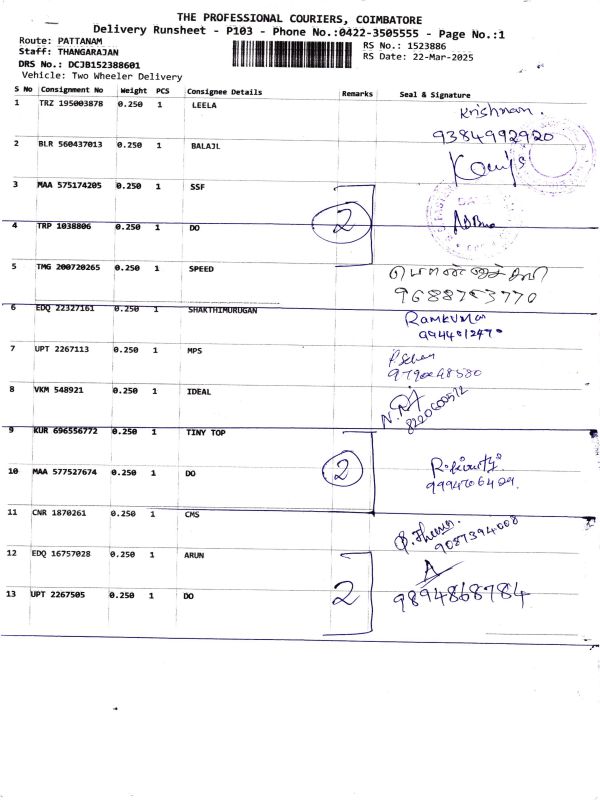 THE PROFESSIONAL COURIERS, COIMBATORE
Delivery Runsheet - P103 - Phone No.:0422-3505555 - Page No.:1
Route: PATTANAM
RS No.: 1523886
Staff: THANGARAJAN
RS Date: 22-Mar-2025
DRS No.: DCJB152388601
Vehicle: Two Wheeler Delivery
S No Consignment No Weight PCS Consignee Details Remarks Seal & Signature
1 TRZ 195003878 0.250 1 LEELA Krishnan.
9384992920
2 BLR 560437013 0.250 1 BALAJL
3 MAA 575174205 0.250 1 SSF
2
4 TRP 1038806 0.250 1 DO
5 TMG 200720265 0.250 1 SPEED
9688753770
6 EDQ 22327161 0.250 1 SHAKTHIMURUGAN Ramkumar
9944012470
7 UPT 2267113 0.250 1 MPS
9790048580
8 VKM 548921 0.250 1 IDEAL
8220600512
9 KUR 696556772 0.250 1 TINY TOP
2
10 MAA 577527674 0.250 1 DO
9994706409
11 CNR 1870261 0.250 1 CMS
9087394008
12 EDQ 16757028 0.250 1 ARUN A
2
13 UPT 2267505 0.250 1 DO 9894868784